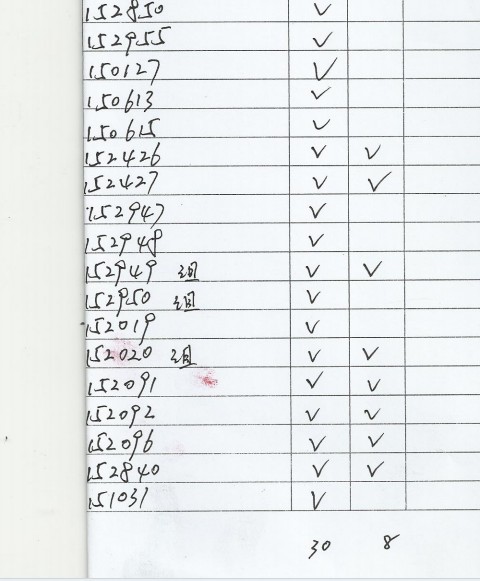 152850 ✓
152955 ✓
150127 ✓
150613 ✓
150615 ✓
152426 ✓ ✓
152427 ✓ ✓
152947 ✓
152948 ✓
152949 组 ✓ ✓
152950 组 ✓
152019 ✓
152020 组 ✓ ✓
152091 ✓ ✓
152092 ✓ ✓
152096 ✓ ✓
152840 ✓ ✓
151031 ✓
30 8